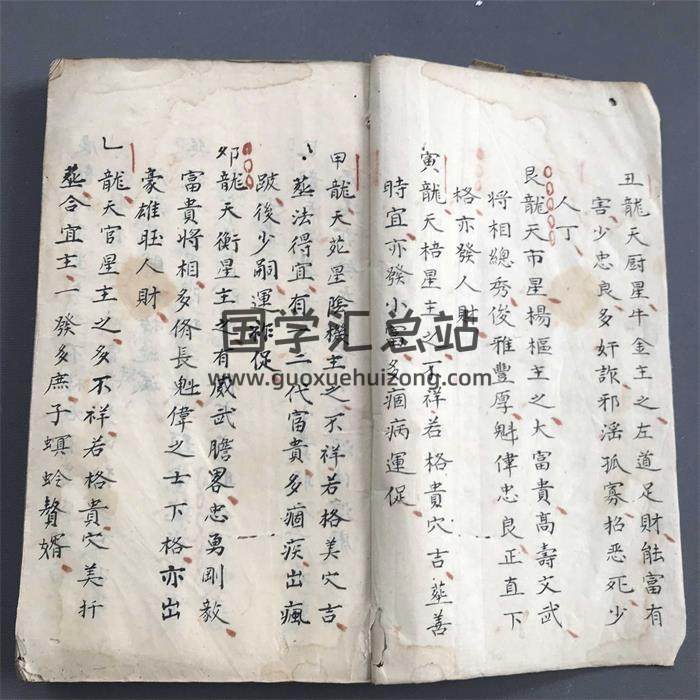 丑龍天厨星牛金主之左道足財能富有
害少忠良多奸詐邪滛孤寡招恶死少
人丁
艮龍天市星楊樞主之大富貴高壽文武
將相總秀俊雅豐厚魁偉忠良正直下
格亦發人財
寅龍天棓星主之不祥若格貴穴吉塟善
時宜亦發小富多痼病運促
甲龍天苑星陰樞主之不祥若格美穴吉
塟法得宜有一二代富貴多痼疾出瘋
跛後少嗣運祚促
夘龍天衡星主之有威武膽畧忠勇剛毅
富貴將相多脩長魁偉之士下格亦出
豪雄旺人財
乚龍天官星主之多不祥若格貴穴美扦
塟合宜主一發多庶子螟蛉贅婿
国学汇总站
www.guoxuehuizong.com